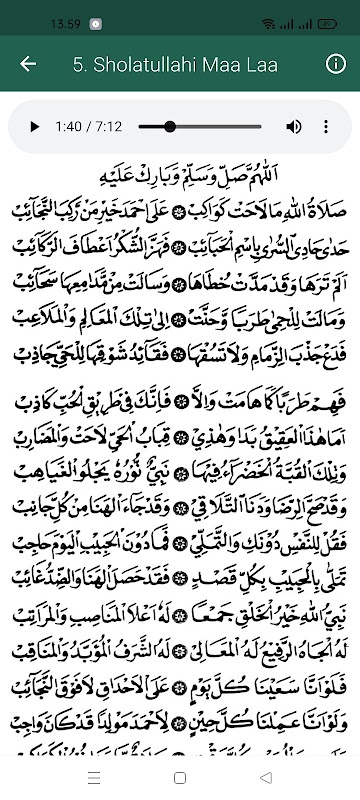 13.59
49
5. Sholatullahi Maa Laa
1:40 / 7:12
اَللّٰهُمَّ صَلِّ وَسَلِّمْ وَبَارِكْ عَلَيْهِ
صَلَاةُ اللهِ مَا لَاحَتْ كَوَاكِبْ ۞ عَلَى احْمَدْ خَيْرِ مَنْ رَكِبَ النَّجَائِبْ
حَدٰى حَادِى السُّرٰى بِاسْمِ الْحَبَائِبْ ۞ فَهَزَّ السُّكْرُ اَعْطَافَ الرَّكَائِبْ
اَلَمْ تَرَهَا وَقَدْ مَدَّتْ خُطَاهَا ۞ وَسَالَتْ مِنْ مَدَامِعِهَا سَحَائِبْ
وَمَالَتْ لِلْحِمٰى طَرَبًا وَحَنَّتْ ۞ اِلٰى تِلْكَ الْمَعَالِمِ وَالْمَلَاعِبْ
فَدَعْ جَذْبَ الزِّمَامِ وَلَا تَسُقْهَا ۞ فَقَائِدُ شَوْقِهَا لِلْحَيِّ جَاذِبْ
فَهِمْ طَرَبًا كَمَا هَامَتْ وَاِلَّا ۞ فَاِنَّكَ فِى طَرِيْقِ الْحُبِّ كَاذِبْ
اَمَا هٰذَا الْعَقِيْقُ بَدَا وَهٰذِيْ ۞ قِبَابُ الْحَيِّ لَاحَتْ وَالْمَضَارِبْ
وَتِلْكَ الْقُبَّةُ الْخَضْرَاءُ فِيْهَا ۞ نَبِيٌّ نُوْرُهُ يَجْلُو الْغَيَاهِبْ
وَقَدْ صَحَّ الرِّضَا وَدَنَا التَّلَاقِيْ ۞ وَقَدْ جَاءَ الْهَنَا مِنْ كُلِّ جَانِبْ
فَقُلْ لِلنَّفْسِ دُوْنَكِ وَالتَّمَلِّيْ ۞ فَمَا دُوْنَ الْحَبِيْبِ الْيَوْمَ حَاجِبْ
تَمَلَّى بِالْحَبِيْبِ بِكُلِّ قَصْدٍ ۞ فَقَدْ حَصَلَ الْهَنَا وَالضِّدُّ غَائِبْ
نَبِيُّ اللهِ خَيْرُ الْخَلْقِ جَمْعًا ۞ لَهُ اَعْلَا الْمَنَاصِبِ وَالْمَرَاتِبْ
لَهُ الْجَاهُ الرَّفِيْعُ لَهُ الْمَعَالِىْ ۞ لَهُ الشَّرَفُ الْمُؤَبَّدُ وَالْمَنَاقِبْ
فَلَوْ اَنَّا سَعَيْنَا كُلَّ يَوْمٍ ۞ عَلَى الْاَحْدَاقِ لَا فَوْقَ النَّجَائِبْ
وَلَوْ اَنَّا عَمِلْنَا كُلَّ حِيْنٍ ۞ لِاَحْمَدَ مَوْلِدًا قَدْ كَانَ وَاجِبْ